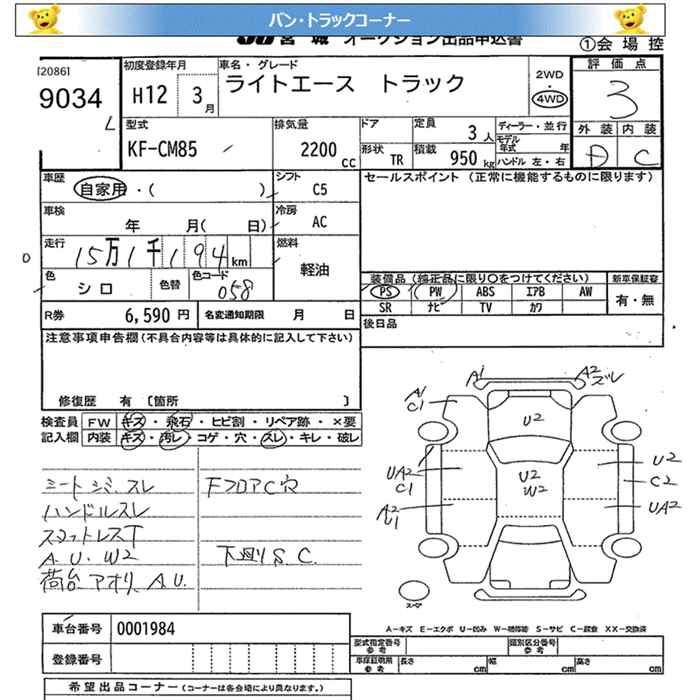 バン・トラックコーナー
JU 宮城 オークション出品申込書
①会場控
[2086]
9034
L
初度登録年月
H12 3月
車名・グレード
ライトエース トラック
2WD
・
4WD
評価点
3
外装 内装
D C
型式
KF-CM85
排気量
2200 cc
ドア
形状 TR
定員 3人
積載 950 kg
ディーラー・並行
モデル年式 年
ハンドル 左・右
車歴
自家用・( )
シフト C5
セールスポイント (正常に機能するものに限ります)
車検
年 月( 日)
冷房 AC
走行
15万1千194km
燃料 軽油
色 シロ
色替
色コード 058
装備品 (純正品に限り○をつけてください)
PS PW ABS エアB AW
SR ナビ TV カワ
新車保証書
有・無
R券 6,590円
名変通知期限 月 日
後日品
注意事項申告欄(不具合内容等は具体的に記入して下さい)
修復歴 有 [箇所 ]
検査員記入欄
FW キズ・飛石・ヒビ割・リペア跡・×要
内装 キズ・汚レ・コゲ・穴・スレ・キレ・破レ
シートシミ.スレ
FフロアC穴
ハンドルスレ
A.U.W2
下廻りS.C.
荷台.アオリ.A.U.
A1
A2
ズレ
A1
C1
U2
UA2
C1
U2
W2
U2
C2
A2
U1
UA2
スペア
A―キズ E―エクボ U―凹み W―補修跡 S―サビ C―腐食 XX―交換済
車台番号 0001984
登録番号
型式指定番号 参考
類別区分番号 参考
車庫証明用 参考
長さ cm
幅 cm
高さ cm
希望出品コーナー (コーナーは各会場により異なります。)